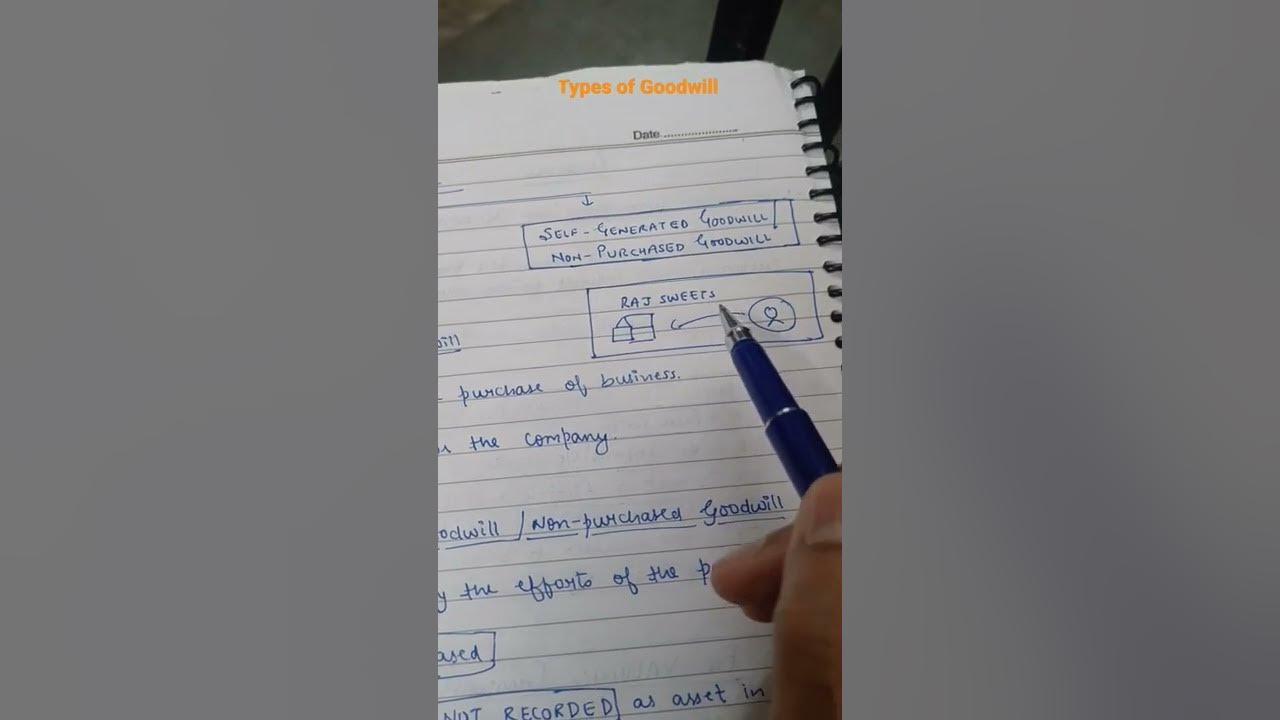 Types of Goodwill
Date
SELF-GENERATED GOODWILL/
NON-PURCHASED GOODWILL
RAJ SWEETS
will
purchase of business.
the company.
odwill / Non-purchased Goodwill
y the efforts of the p
ased
NOT RECORDED as asset in